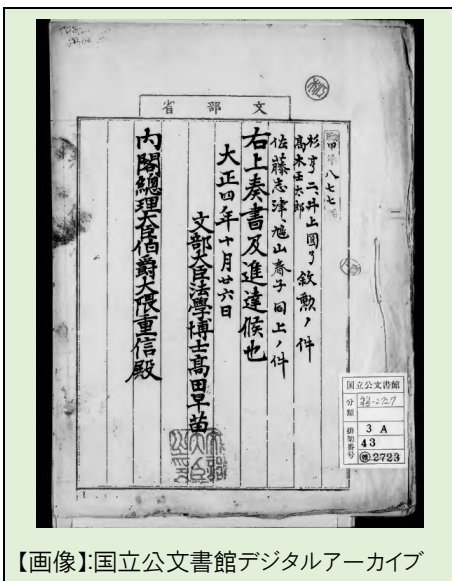 文部省
甲第八七七
杉亨二、井上圓了敘勲ノ件
髙木壬太郎
佐藤志津、鳩山春子同上ノ件
右上奏書及進達候也
大正四年十月廿六日
文部大臣法學博士髙田早苗
内閣總理大臣伯爵大隈重信殿
国立公文書館
分類
排架番号
3 A
43
2723
【画像】:国立公文書館デジタルアーカイブ